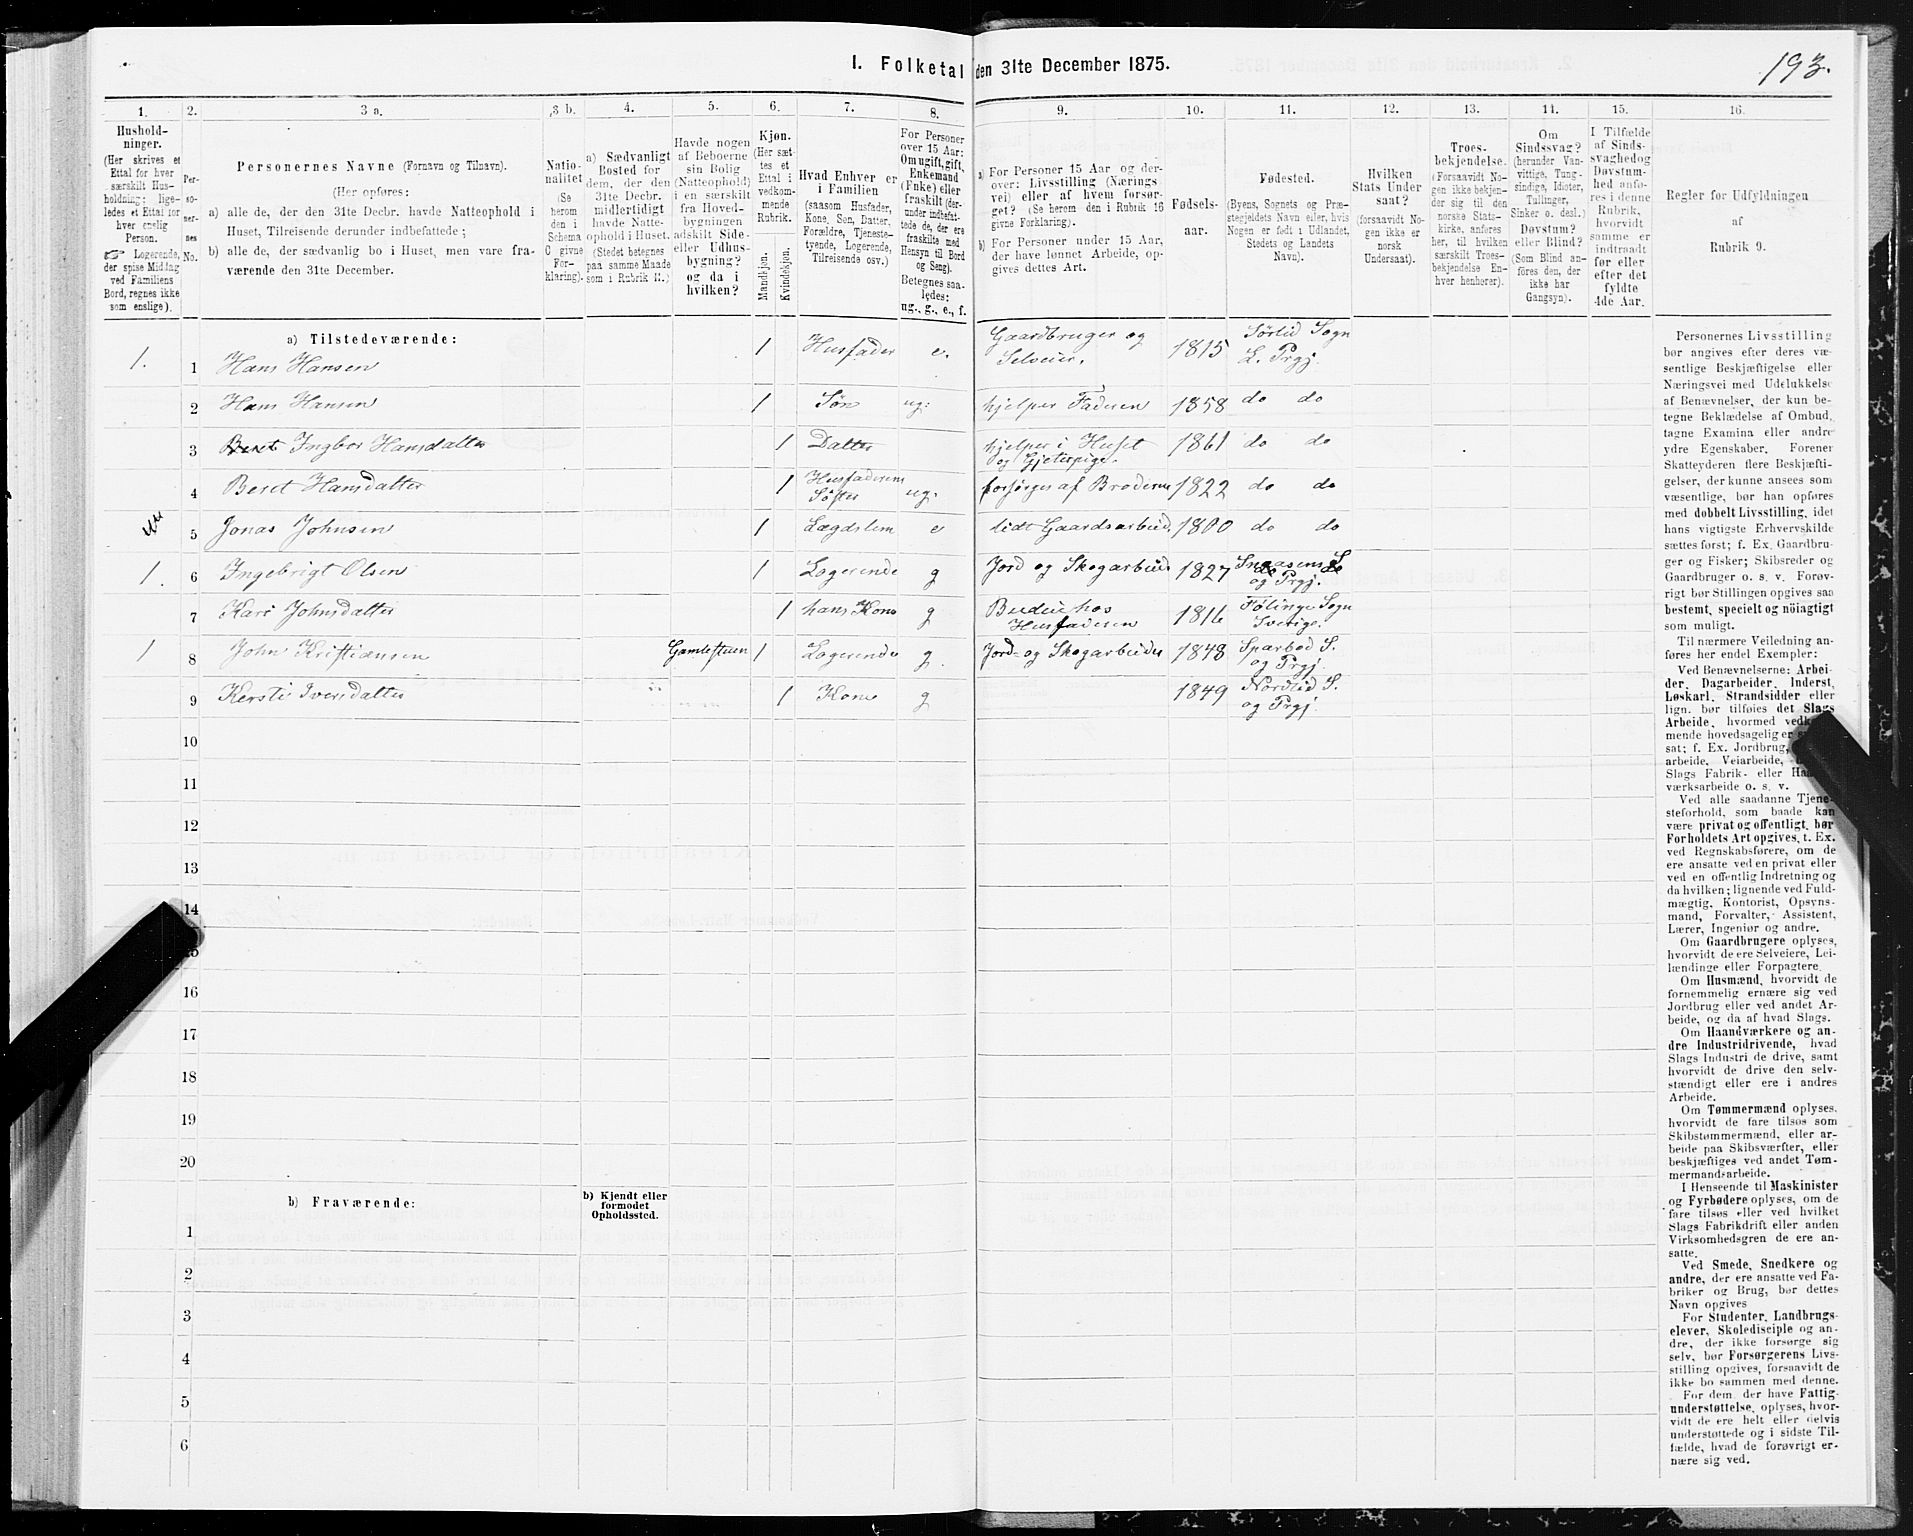 1. Folketal den 31te December 1875.
193.
1.
2.
3 a.
3 b.
4.
5.
6.
7.
8.
9.
10.
11.
12.
13.
14.
15.
16.
Hushold-
ninger.
(Her skrives et
Ettal for hver
særskilt Hus-
holdning; lige-
ledes et Ettal for
hver enslig
Person.
☞ Logerende,
der spise Middag
ved Familiens
Bord, regnes ikke
som enslige).
Per-
so-
ner-
nes
No.
Personernes Navne (Fornavn og Tilnavn).
(Her opføres:
a) alle de, der den 31te Decbr. havde Natteophold i
Huset, Tilreisende derunder indbefattede;
b) alle de, der sædvanlig bo i Huset, men vare fra-
værende den 31te December.
Natio-
nalitet
(Se
herom
den i
Schema
C givne
For-
klaring).
a) Sædvanligt
Bosted for
dem, der den
31te Decbr.
midlertidigt
havde Natte-
ophold i Huset.
(Stedet betegnes
paa samme Maade
som i Rubrik 11.)
Havde nogen
af Beboerne
sin Bolig
(Natteophold)
i en særskilt
fra Hoved-
bygningen
adskilt Side-
eller Udhus-
bygning?
og da i
hvilken?
Kjøn.
(Her sæt-
tes et
Ettal i
vedkom-
mende
Rubrik.
Mandkjøn.
Kvindekjøn.
Hvad Enhver er
i Familien
(saasom Husfader,
Kone, Søn, Datter,
Forældre, Tjeneste-
tyende, Logerende,
Tilreisende osv.)
For Personer
over 15 Aar:
Om ugift, gift,
Enkemand
(Enke) eller
fraskilt (der-
under indbefat-
tede de, der ere
fraskilte med
Hensyn til Bord
og Seng).
Betegnes saa-
ledes:
ug., g., e., f.
a) For Personer 15 Aar og der-
over: Livsstilling (Nærings
vei) eller af hvem forsør-
get? (Se herom den i Rubrik 16
givne Forklaring).
b) For Personer under 15 Aar,
der have lønnet Arbeide, op-
gives dettes Art.
Fødsels-
aar.
Fødested.
(Byens, Sognets og Præ-
stegjeldets Navn eller, hvis
Nogen er født i Udlandet,
Stedets og Landets
Navn).
Hvilken
Stats Under
saat?
(forsaavidt No-
gen ikke er
norsk
Undersaat).
Troes-
bekjendelse.
(Forsaavidt No-
gen ikke bekjen-
der sig til den
norske Stats-
kirke, anføres
her, til hvilken
særskilt Troes-
bekjendelse En-
hver henhører).
Om
Sindssvag?
(herunder Van-
vittige, Tung-
sindige, Idioter,
Tullinger,
Sinker o. desl.)
Døvstum?
eller Blind?
(Som Blind an-
føres den, der
ikke har
Gangsyn).
I Tilfælde
af Sinds-
svaghed og
Døvstum-
hed anfø-
res i denne
Rubrik,
hvorvidt
samme er
indtraadt
før eller
efter det
fyldte
4de Aar.
Regler for Udfyldningen
af
Rubrik 9.
a) Tilstedeværende:
1. 1 Hans Hansen 1 Husfader e. Gaardbruger og Selveier. 1815 Sørlid Sogn L. Prgj.
2 Hans Hansen 1 Søn ug: hjelper Faderen 1858 do do
3 Beret Ingbor Hansdatter 1 Datter hjelper i Huset og Gjeterpige. 1861 do do
4 Beret Hansdatter 1 Husfaderens Søster ug. forsørges af Broderen 1822 do do
5 Jonas Johnsen 1 Lægdslem e lidt Gaardsarbeid. 1800 do do
1. 6 Ingebrigt Olsen 1 Logerende g Jord og Skogarbeide 1827 og Prgj.
7 Kari Johnsdatter 1 hans Kone g Budeie hos Husfaderen 1816 Følinge Sogn Sverige.
1 8 John Kristiansen Gamlestuen 1 Logerende g. Jord- og Skogarbeider 1848 Sparbod S. og Prgj.
9 Kersti Iversdatter 1 Kone g 1849 Nordlid S. og Prgj.
10
11
12
13
14
15
16
17
18
19
20
b) Fraværende:
b) Kjendt eller
formodet
Opholdssted.
1
2
3
4
5
6
Personernes Livsstilling
bør angives efter deres væ-
sentlige Beskjæftigelse eller
Næringsvei med Udelukkelse
af Benævnelser, der kun be-
tegne Beklædelse af Ombud,
tagne Examina eller andre
ydre Egenskaber. Forener
Skatteyderen flere Beskjæfti-
gelser, der kunne ansees som
væsentlige, bør han opføres
med dobbelt Livsstilling, idet
hans vigtigste Erhvervskilde
sættes først; f. Ex. Gaardbru-
ger og Fisker; Skibsreder og
Gaardbruger o. s. v. Forøv-
rigt bør Stillingen opgives saa
bestemt, specielt og nöiagtigt
som muligt.
Til nærmere Veiledning an-
føres her endel Exempler:
Ved Benævnelserne: Arbei-
der, Dagarbeider, Inderst,
Løskarl, Strandsidder eller
lign. bør tilføies det Slags
Arbeide, hvormed vedkom-
mende hovedsagelig er
sat; f. Ex. Jordbrug,
arbeide, Veiarbeide,
Slags Fabrik- eller
værksarbeide o. s. v.
Ved alle saadanne Tjene-
steforhold, som baade kan
være privat og offentligt, bør
Forholdets Art opgives, t. Ex.
ved Regnskabsførere, om de
ere ansatte ved en privat eller
ved en offentlig Indretning og
da hvilken; lignende ved Fuld-
mægtig, Kontorist, Opsyns-
mand, Forvalter, Assistent,
Lærer, Ingeniør og andre.
Om Gaardbrugere oplyses,
hvorvidt de ere Selveiere, Lei-
lændinge eller Forpagtere.
Om Husmænd, hvorvidt de
fornemmelig ernære sig ved
Jordbrug eller ved andet Ar-
beide, og da af hvad Slags.
Om Haandværkere og an-
dre Industridrivende, hvad
Slags Industri de drive, samt
hvorvidt de drive den selv-
stændigt eller ere i andres
Arbeide.
Om Tømmermænd oplyses,
hvorvidt de fare tilsøs som
Skibstømmermænd, eller ar-
beide paa Skibsværfter, eller
beskjæftiges ved andet Tøm-
mermandsarbeide.
I Henseende til Maskinister
og Fyrbødere oplyses, om de
fare tilsøs eller ved hvilket
Slags Fabrikdrift eller anden
Virksomhedsgren de ere an-
satte.
Ved Smede, Snedkere og
andre, der ere ansatte ved Fa-
briker og Brug, bør dettes
Navn opgives
For Studenter, Landbrugs-
elever, Skoledisciple og an-
dre, der ikke forsørge sig
selv, bør Forsørgerens Livs-
stilling opgives, forsaavidt de
ikke bo sammen med denne.
For dem, der have Fattig-
understøttelse, oplyses, hvor-
vidt de ere helt eller delvis
understøttede og i sidste Til-
fælde, hvad de forøvrigt er-
nære sig ved.